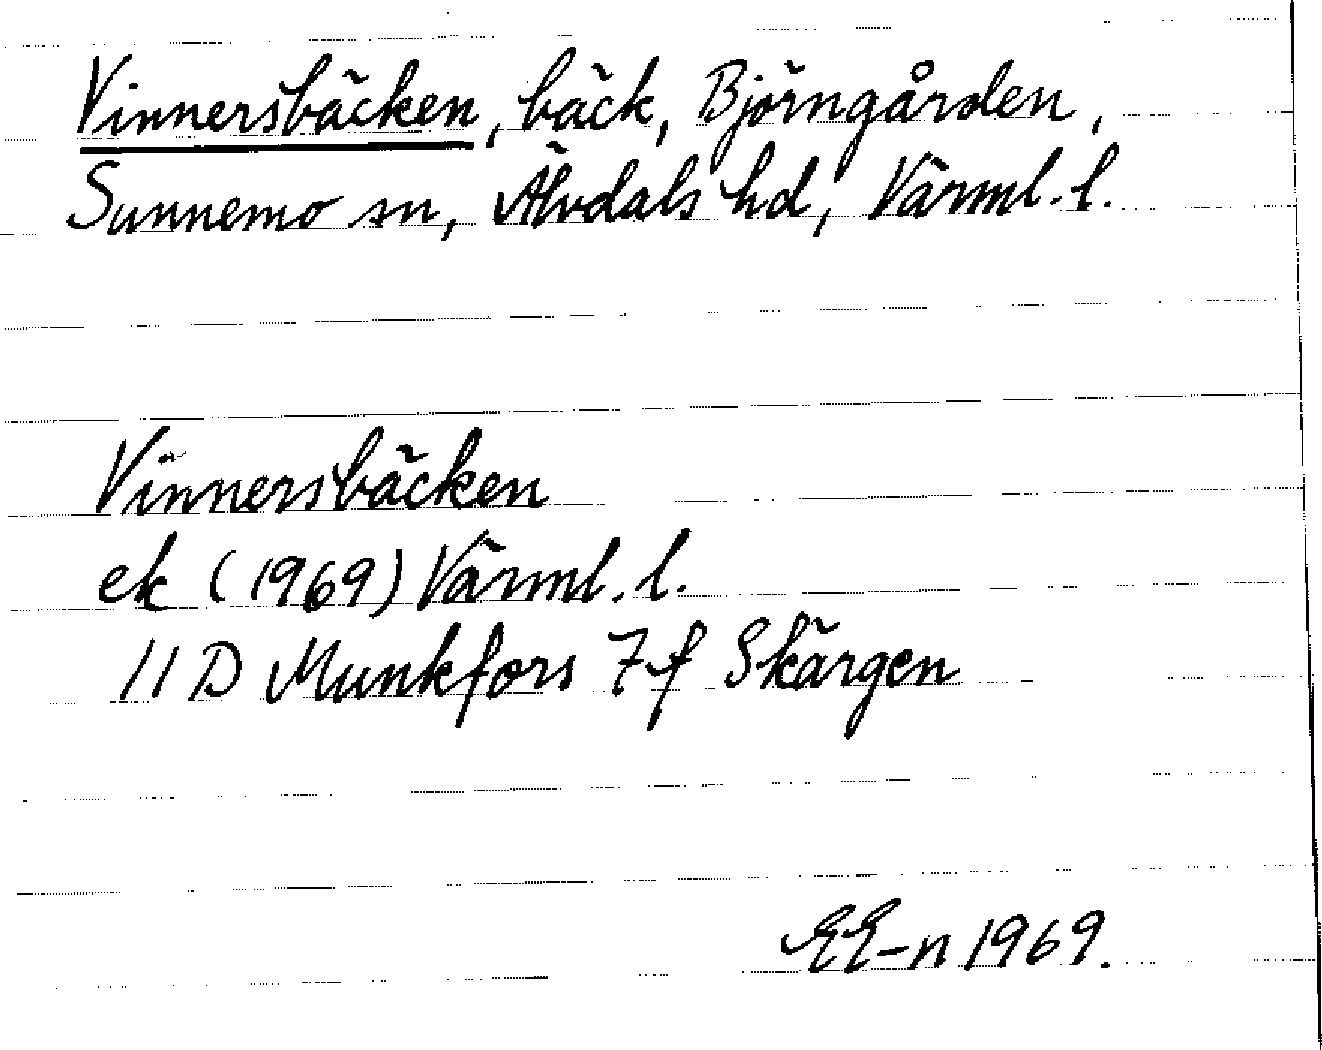 Vinnersbäcken, bäck, Björngården,
Sunnemo sn, Älvdals hd, Värml. l.
Vinnersbäcken
ek (1969) Värml. l.
11 D Munkfors 7 f Skärgen
EE-n 1969.